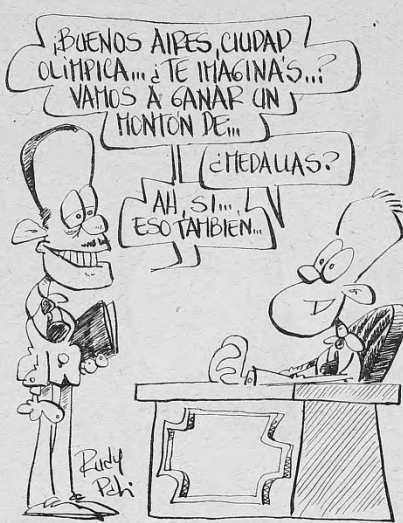 ¡BUENOS AIRES, CIUDAD
OLÍMPICA... ¿TE IMAGINÁS..?
VAMOS A GANAR UN
MONTÓN DE...
¿MEDALLAS?
AH, SI...,
ESO TAMBIEN...
Rudy
Pati